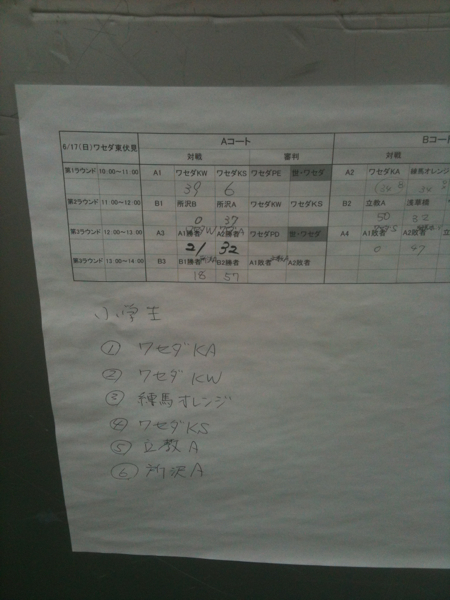 6/17(日)ワセダ東伏見 Aコート Bコート
対戦 審判 対戦
第1ラウンド 10:00~11:00 A1 ワセダKW ワセダKS ワセダPE 世・ワセダ A2 ワセダKA 練馬オレンジ
39 6
第2ラウンド 11:00~12:00 B1 所沢B 所沢A ワセダKW ワセダKS B2 立教A 浅草橋
0 37 50 32
第3ラウンド 12:00~13:00 A3 A1勝者 A2勝者 ワセダPD 世・ワセダ A4 A1敗者 A2敗者
21 32 0 47
第2ラウンド 13:00~14:00 B3 B1勝者 B2勝者 A1敗者 A2勝者
18 57
小学生
① ワセダKA
② ワセダKW
③ 練馬オレンジ
④ ワセダKS
⑤ 立教A
⑥ 所沢A